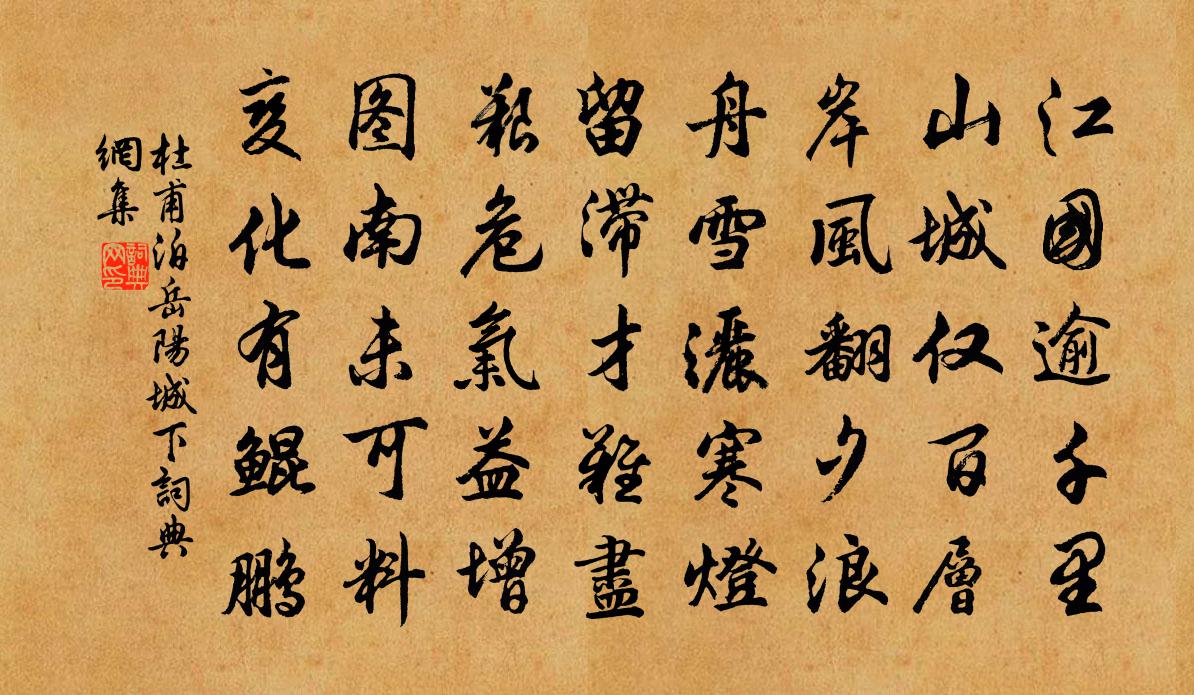 江國逾千里
山城仅百層
岸風翻夕浪
舟雪灑寒燈
留滞才難盡
艱危氣益增
图南未可料
变化有鲲鹏
杜甫泊岳陽城下詞典
網集
詞典
网印